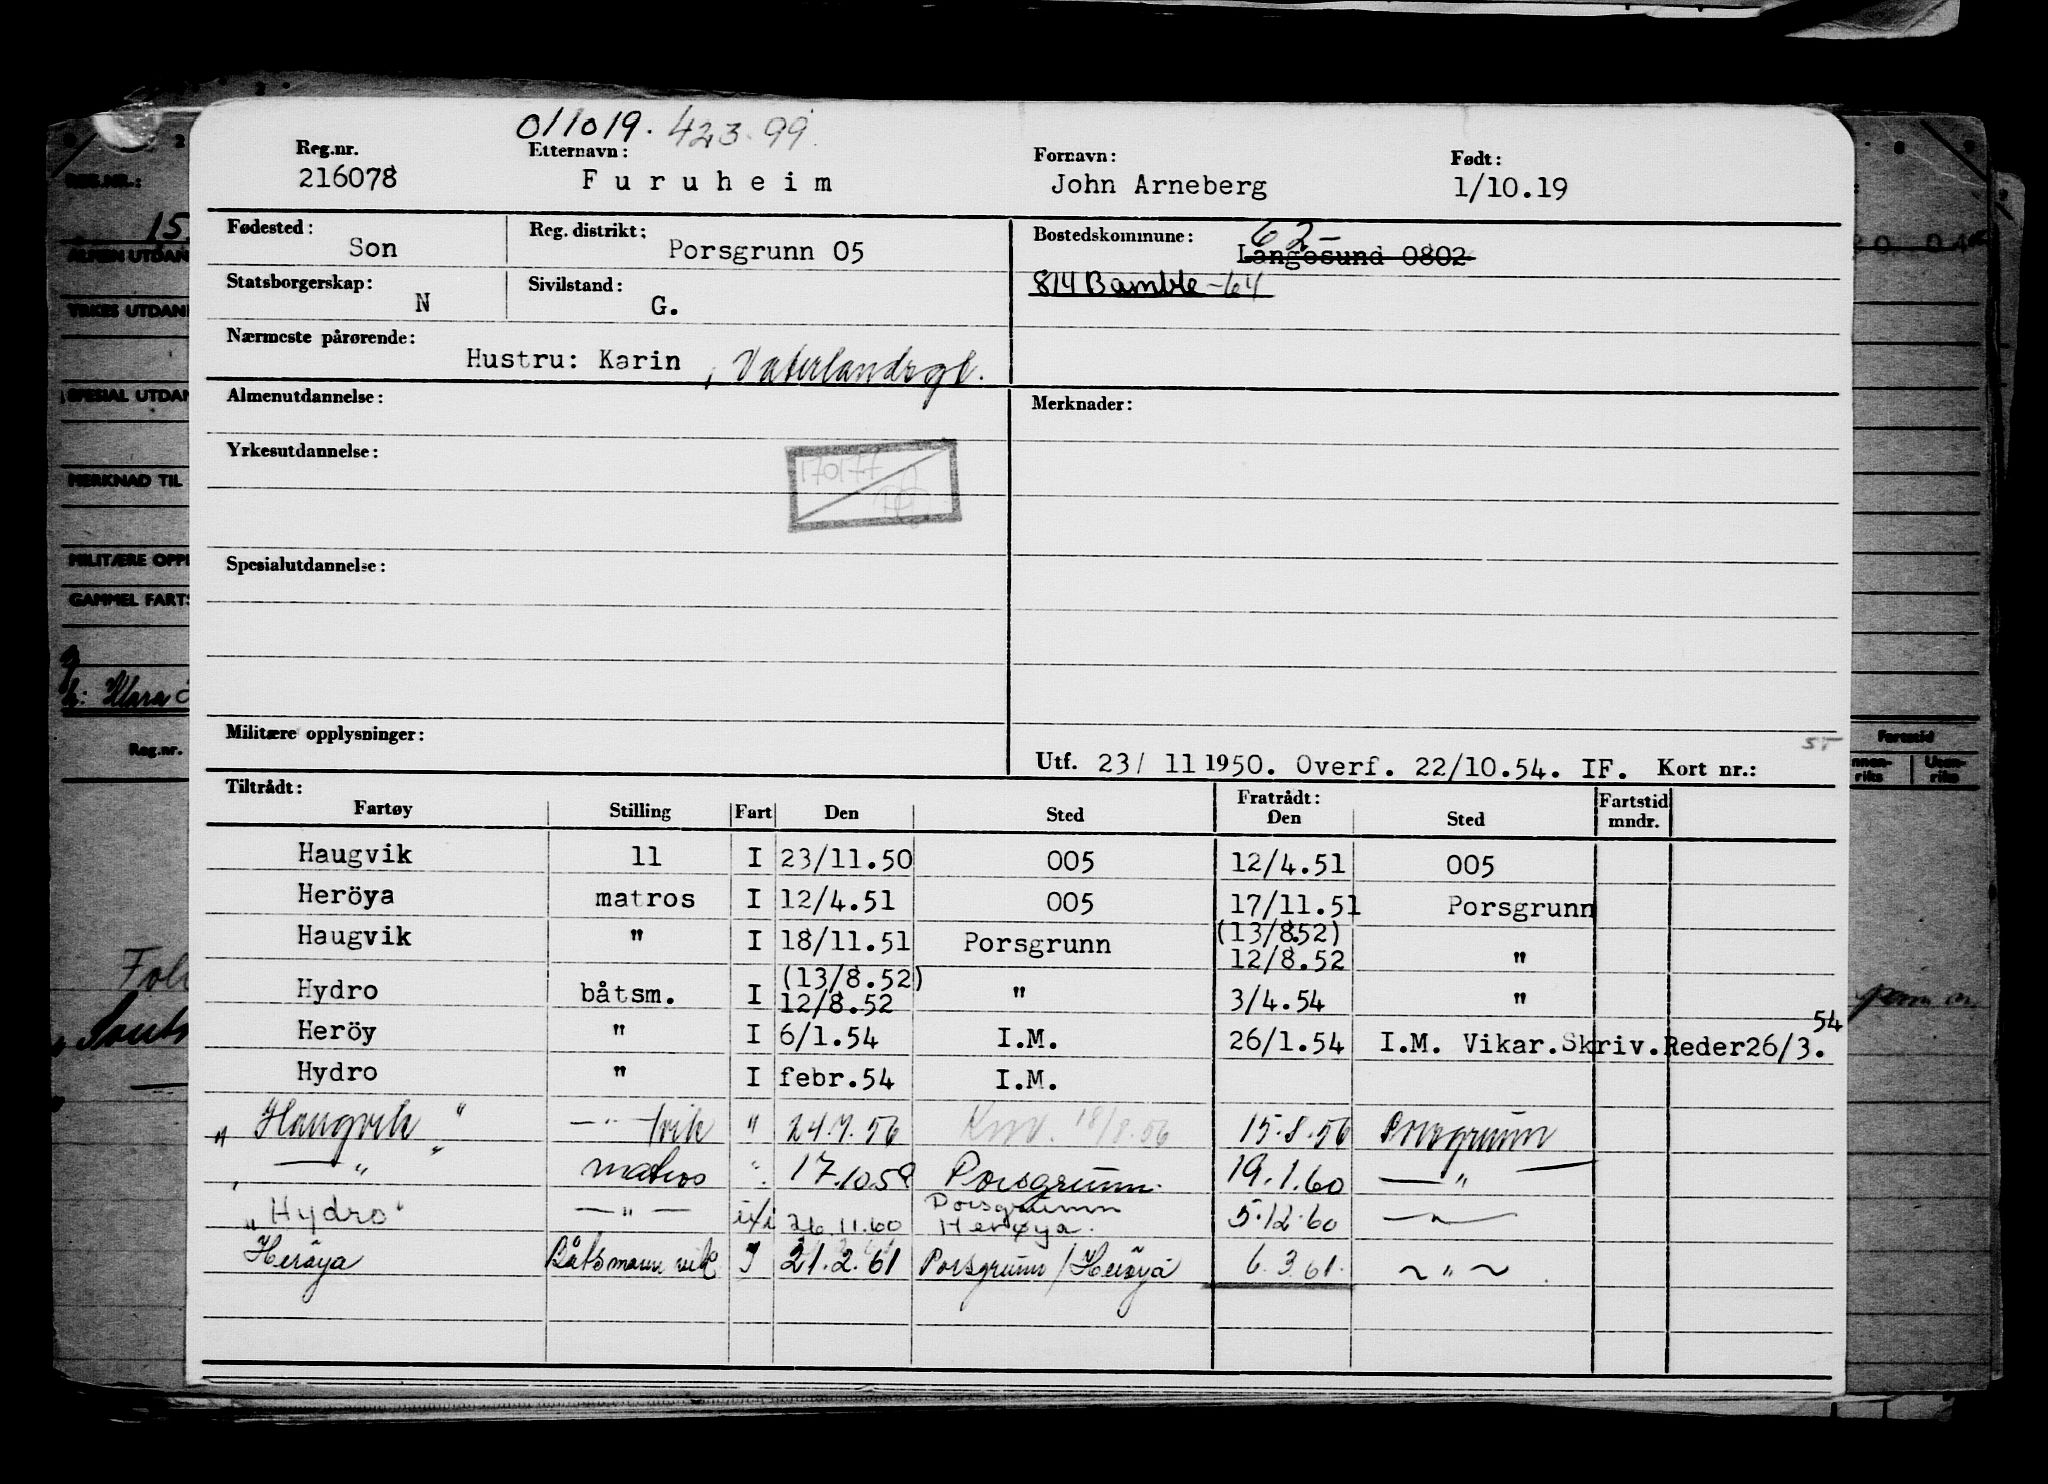 011019. 423.99
Reg.nr. Etternavn: Fornavn: Født:
216078 Furuheim John Arneberg 1/10.19
Fødested: Reg. distrikt: Bostedskommune: 62-
Son Porsgrunn 05 Langesund 0802
Statsborgerskap: Sivilstand: 814 Bamble -64
N G.
Nærmeste pårørende:
Hustru: Karin, Vaterlandsgt.
Almenutdannelse: Merknader:
Yrkesutdannelse:
170177
Spesialutdannelse:
Militære opplysninger:
Utf. 23/ 11 1950. Overf. 22/10.54. IF. Kort nr.:
Tiltrådt: Fratrådt: Fartstid
Fartøy Stilling Fart Den Sted Den Sted mndr.
Haugvik 11 I 23/11.50 005 12/4.51 005
Heröya matros I 12/4.51 005 17/11.51 Porsgrunn
Haugvik " I 18/11.51 Porsgrunn (13/8.52) 12/8.52 "
Hydro båtsm. I (13/8.52) 12/8.52 " 3/4.54 "
Heröy " I 6/1.54 I.M. 26/1.54 I.M. Vikar.Skriv.Reder26/3.54
Hydro " I febr.54 I.M.
"Haugvik" —"— /vik " 24.7.56 18/8.56 15.8.56 Porsgrunn
" —"— " matros " 17.10.59 Porsgrunn. 19.1.60 —"—
"Hydro" —"— i/i 26.11.60 Porsgrunn Herøya. 5.12.60 —"—
Heröya Båtsmann vik I 21.2.61 Porsgrunn/Heröya 6.3.61. ~"~
REG.NR.:
15.
ALMEN UTDAN
YRKES UTDAN
SPESIAL UTDAN
MERKNAD TIL
MILITÆRE OPP
GAMMEL FARTS
Reg.nr.
Fartstid